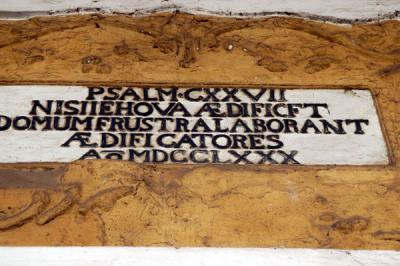 PSALM·CXXVII
NISI IEHOVA ÆDIFICET
DOMUM FRUSTRA LABORANT
ÆDIFICATORES
AŌ MDCCLXXX